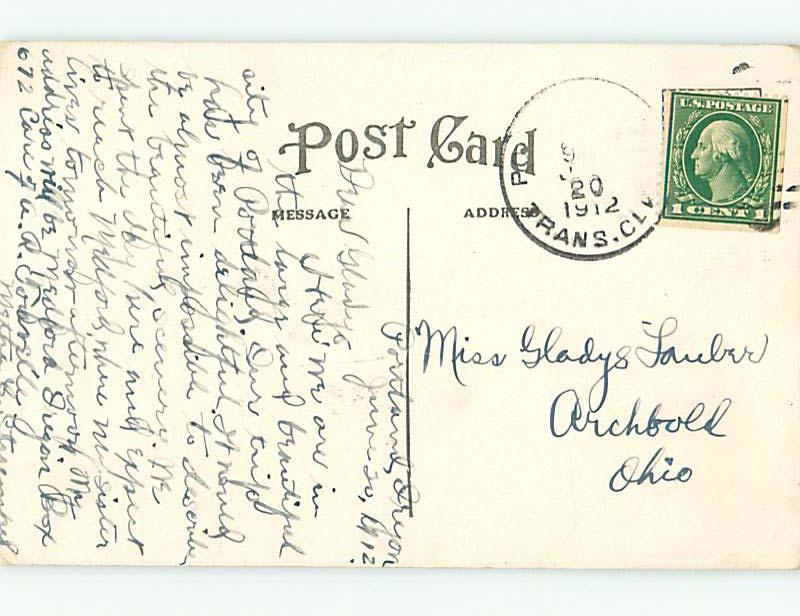 POST CARD
MESSAGE
ADDRESS
U.S. POSTAGE
1 CENT 1
20
1912
TRANS. CL
Miss Gladys Lauber
Archbold
Ohio
Portland, Oregon
June 20, 1912.
Dear Gladys
Here we are in
the large and beautiful
city of Portland. Our trip
has been delightful. It would
be almost impossible to describe
the beautiful scenery. We
spent the day here and expect
to reach Medford, where my sister
lives tomorrow afternoon. My
address will be Medford Oregon Box
672 Care of A. R.